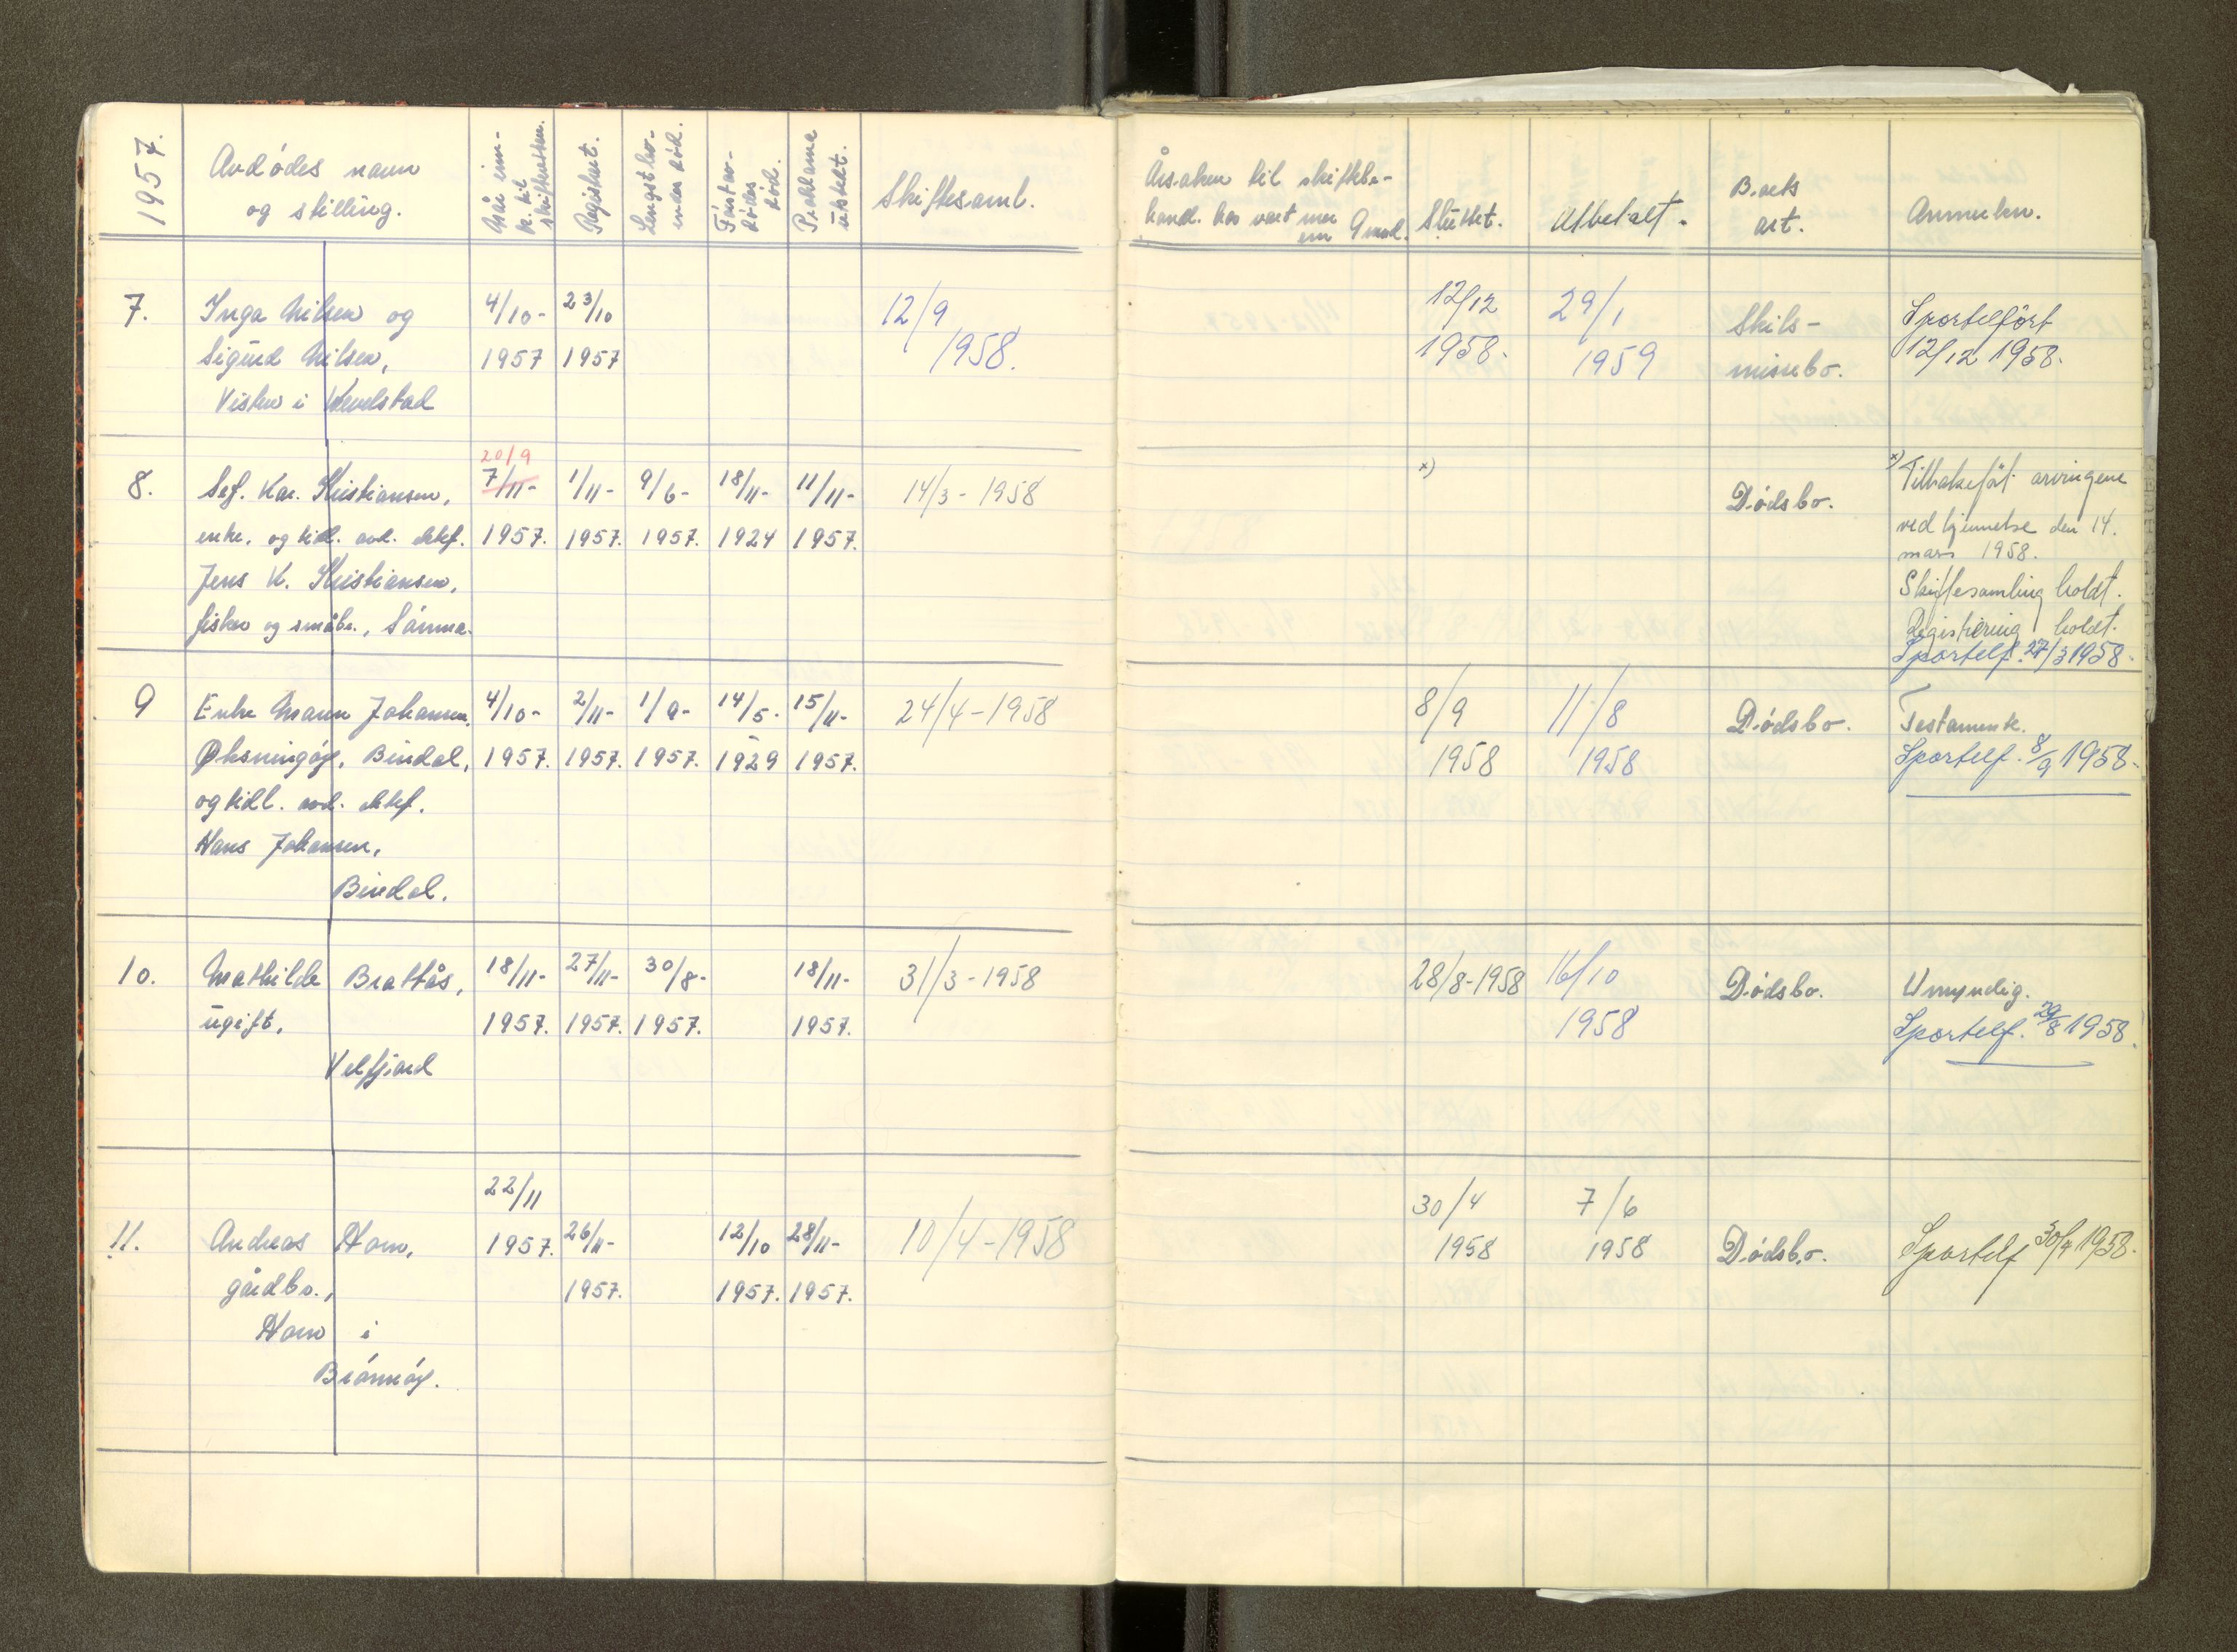 1957.
Avdødes navn
og stilling.
Når inn-
k. til
skifteretten.
Registrert.
Lengstlev-
endes død.
Førstav-
dødes
død.
Proklama
utstedt.
Skiftesaml.
Årsaken til skiftebe-
handl. har vart mer
enn 9 mnd.
Sluttet.
Utbetalt.
Boets
art.
Anmerkn.
7. Inga Nilsen og 4/10- 23/10 12/9 12/12 29/1 Skils- Sportelført
Sigurd Nilsen, 1957 1957 1958. 1958. 1959 missebo. 12/12 1958.
Visten i Vevelstad
20/9
8. Sef. Kar. Kristiansen, 7/11- 1/11- 9/6- 18/11- 11/11- 14/3-1958 x) Dødsbo. x) Tilbakeført arvingene
enke, og tidl. avd. ektef. 1957. 1957. 1957. 1924 1957. ved kjennelse den 14.
mars 1958.
Jens K. Kristiansen, Skiftesamling holdt.
fisker og småbr., Sømna. Registrering holdt.
Sportelf. 27/3 1958.
9 Enke Maren Johansen, 4/10- 2/11- 1/9- 14/5- 15/11- 24/4-1958 8/9 11/8 Dødsbo. Testamente.
Øksningøy, Bindal, 1957. 1957. 1957. 1929 1957. 1958 1958 Sportelf. 8/9 1958.
og tidl. avd. ektef.
Hans Johansen,
Bindal.
10. Mathilde Brattås, 18/11- 27/11- 30/8- 18/11- 31/3-1958 28/8-1958 16/10 Dødsbo. Umyndig.
ugift, 1957. 1957. 1957. 1957. 1958 Sportelf. 29/8 1958.
Velfjord
22/11 30/4 7/6
11. Andreas Horn, 1957. 26/11- 12/10 28/11- 10/4-1958 1958 1958 Dødsbo. Sportelf 30/4 1958.
gårdbr., 1957. 1957. 1957.
Horn i
Brønnøy.